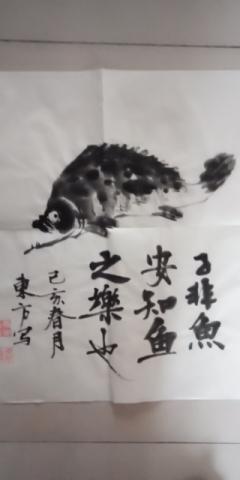 子非魚
安知鱼
之樂也
己亥春月
東方写